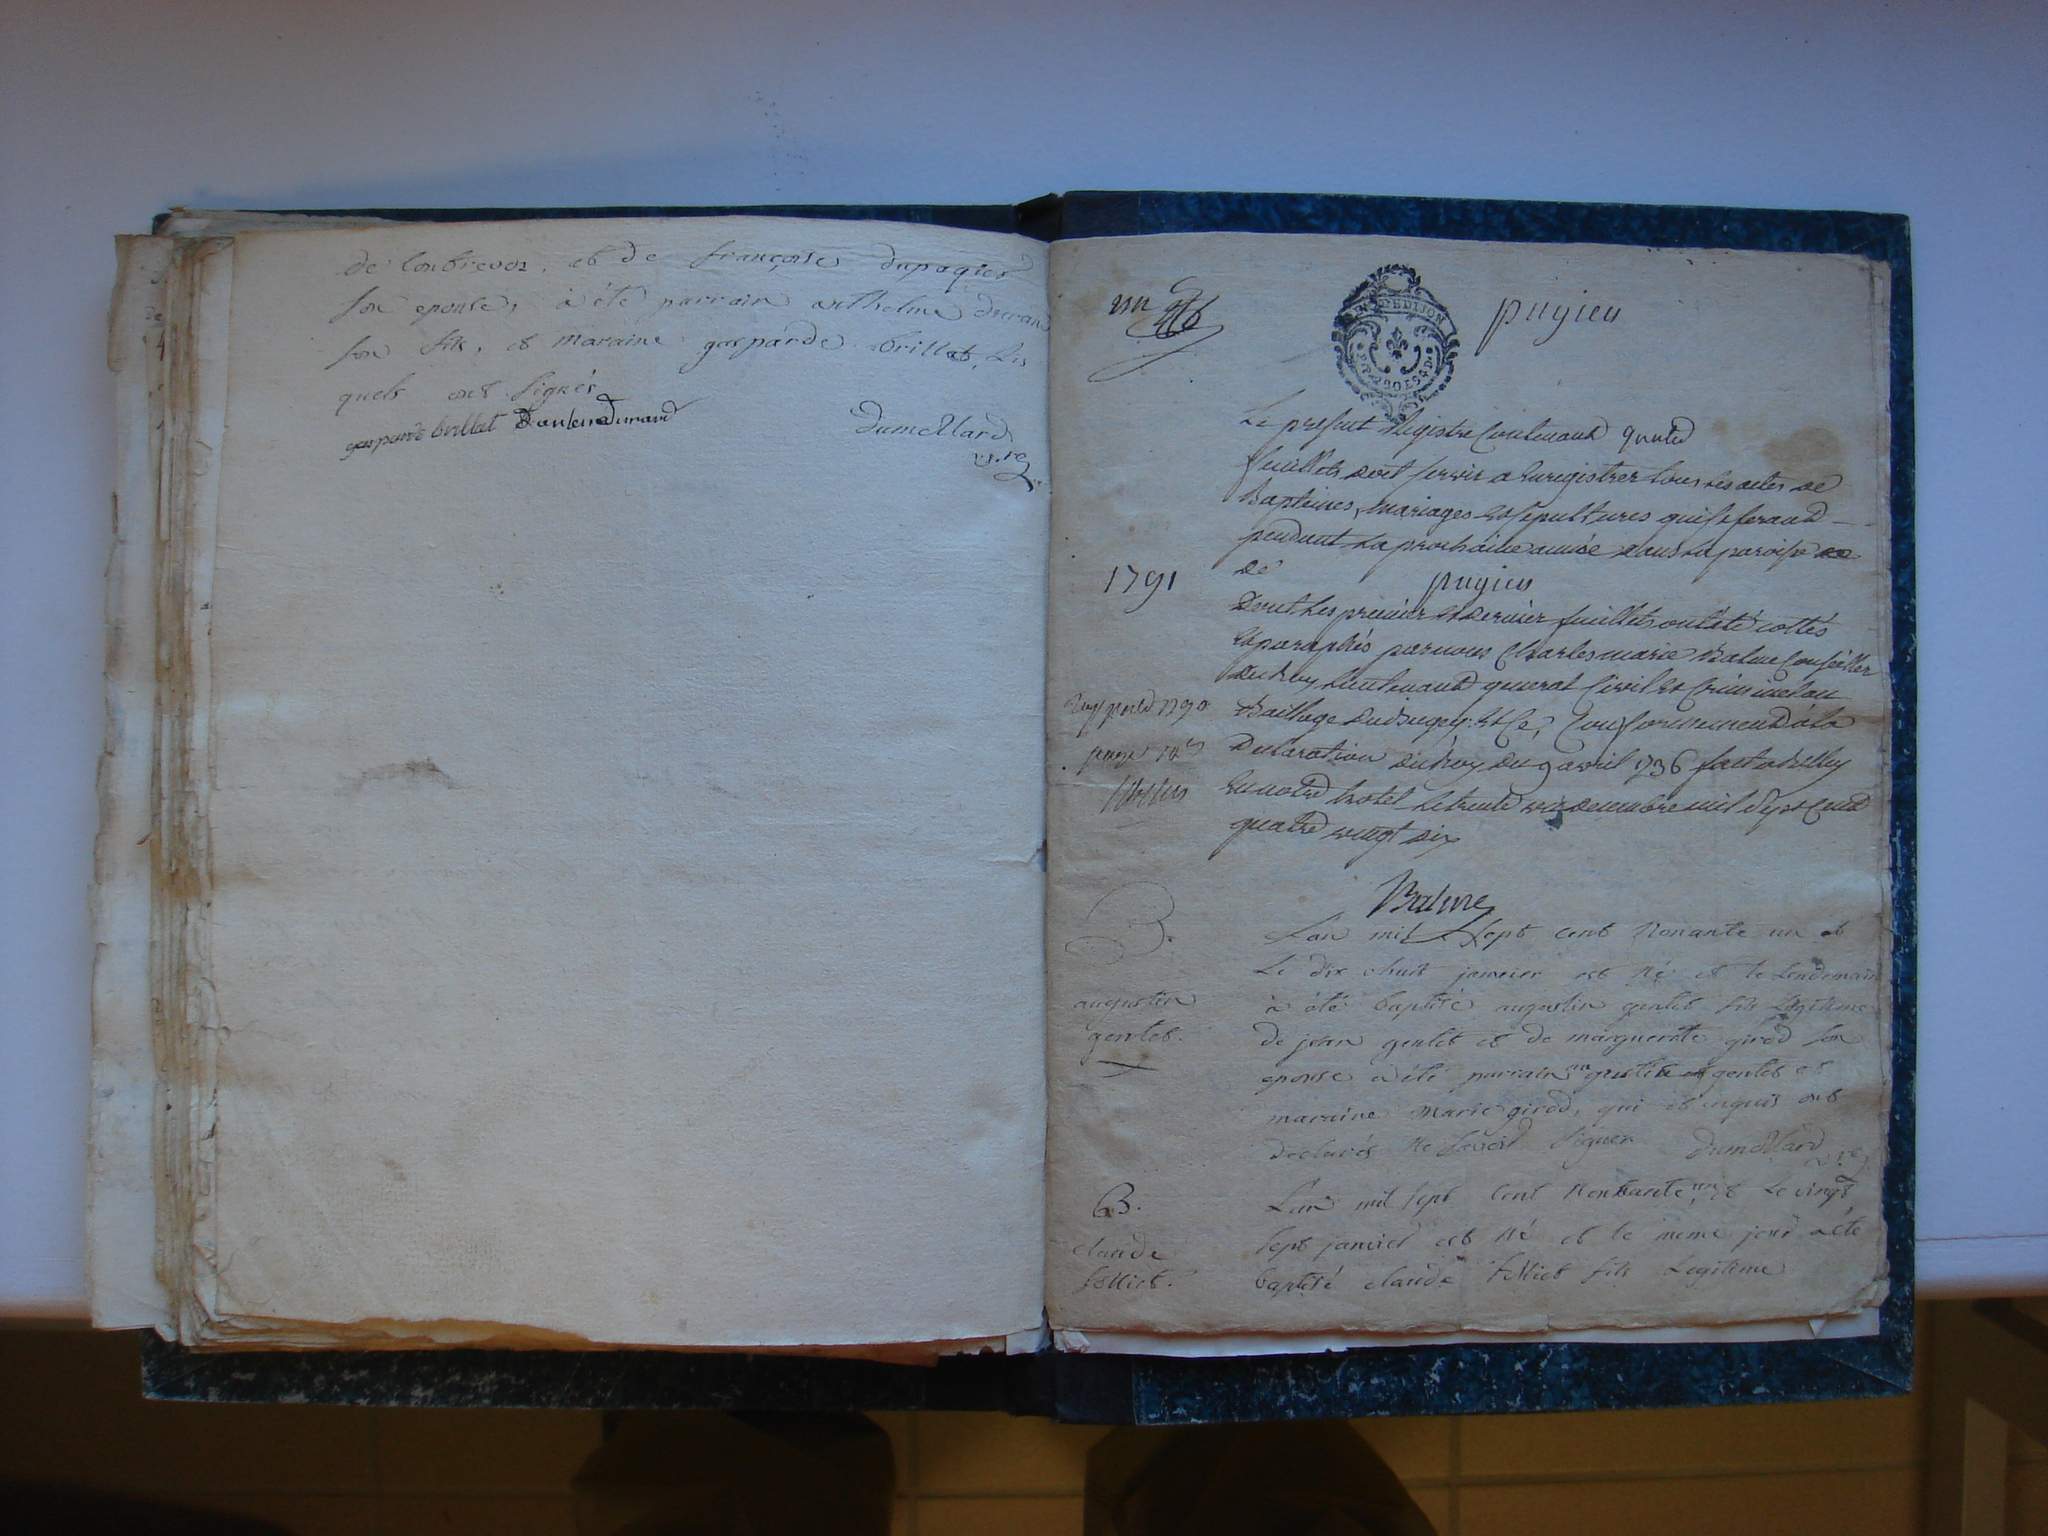 de Conbrevoz, et de françoise dupagier
son epouse, à été parrain anthelme
son fils, et maraine gasparde brillat, les
quels ont signés
gasparde brillat Durand dumollard
un
pugieu
Le present Registre Contenant quatre
feuillets doit servir a Enregistrer tous les actes de
Baptêmes, mariages Et sepultures qui se feront
pendant La prochaine année dans La paroisse
de pugieu
1791
Dont Les premier Et Dernier feuillets ont été cottés
Et paraphés par nous Charles marie Balme Conseiller
du Roy Lieutenant general Civil Et Criminel au
Baillage du Bugey Conformement à la
Declaration du Roy du 9 avril 1736 fait a Belley
En notre hotel Le trente un decembre mil sept Cent
quatre vingt dix
1790
Balme
B.
augustin
gentet.
L'an mil sept cent Nonante un et
Le dix ehuit janvier est Né et le Lendemain
à été baptisé augustin gentet fils Légitime
de jean gentet et de marguerite girod son
epouse à été parrain gentet et
maraine marie girod, qui et enquis ont
declarés Ne savoir signer dumollard
B.
claude
folliet.
L'an mil sept Cent Nonante un et Le vingt
sept janvier est Né et le meme jour a été
baptisé claude folliet fils Legitime